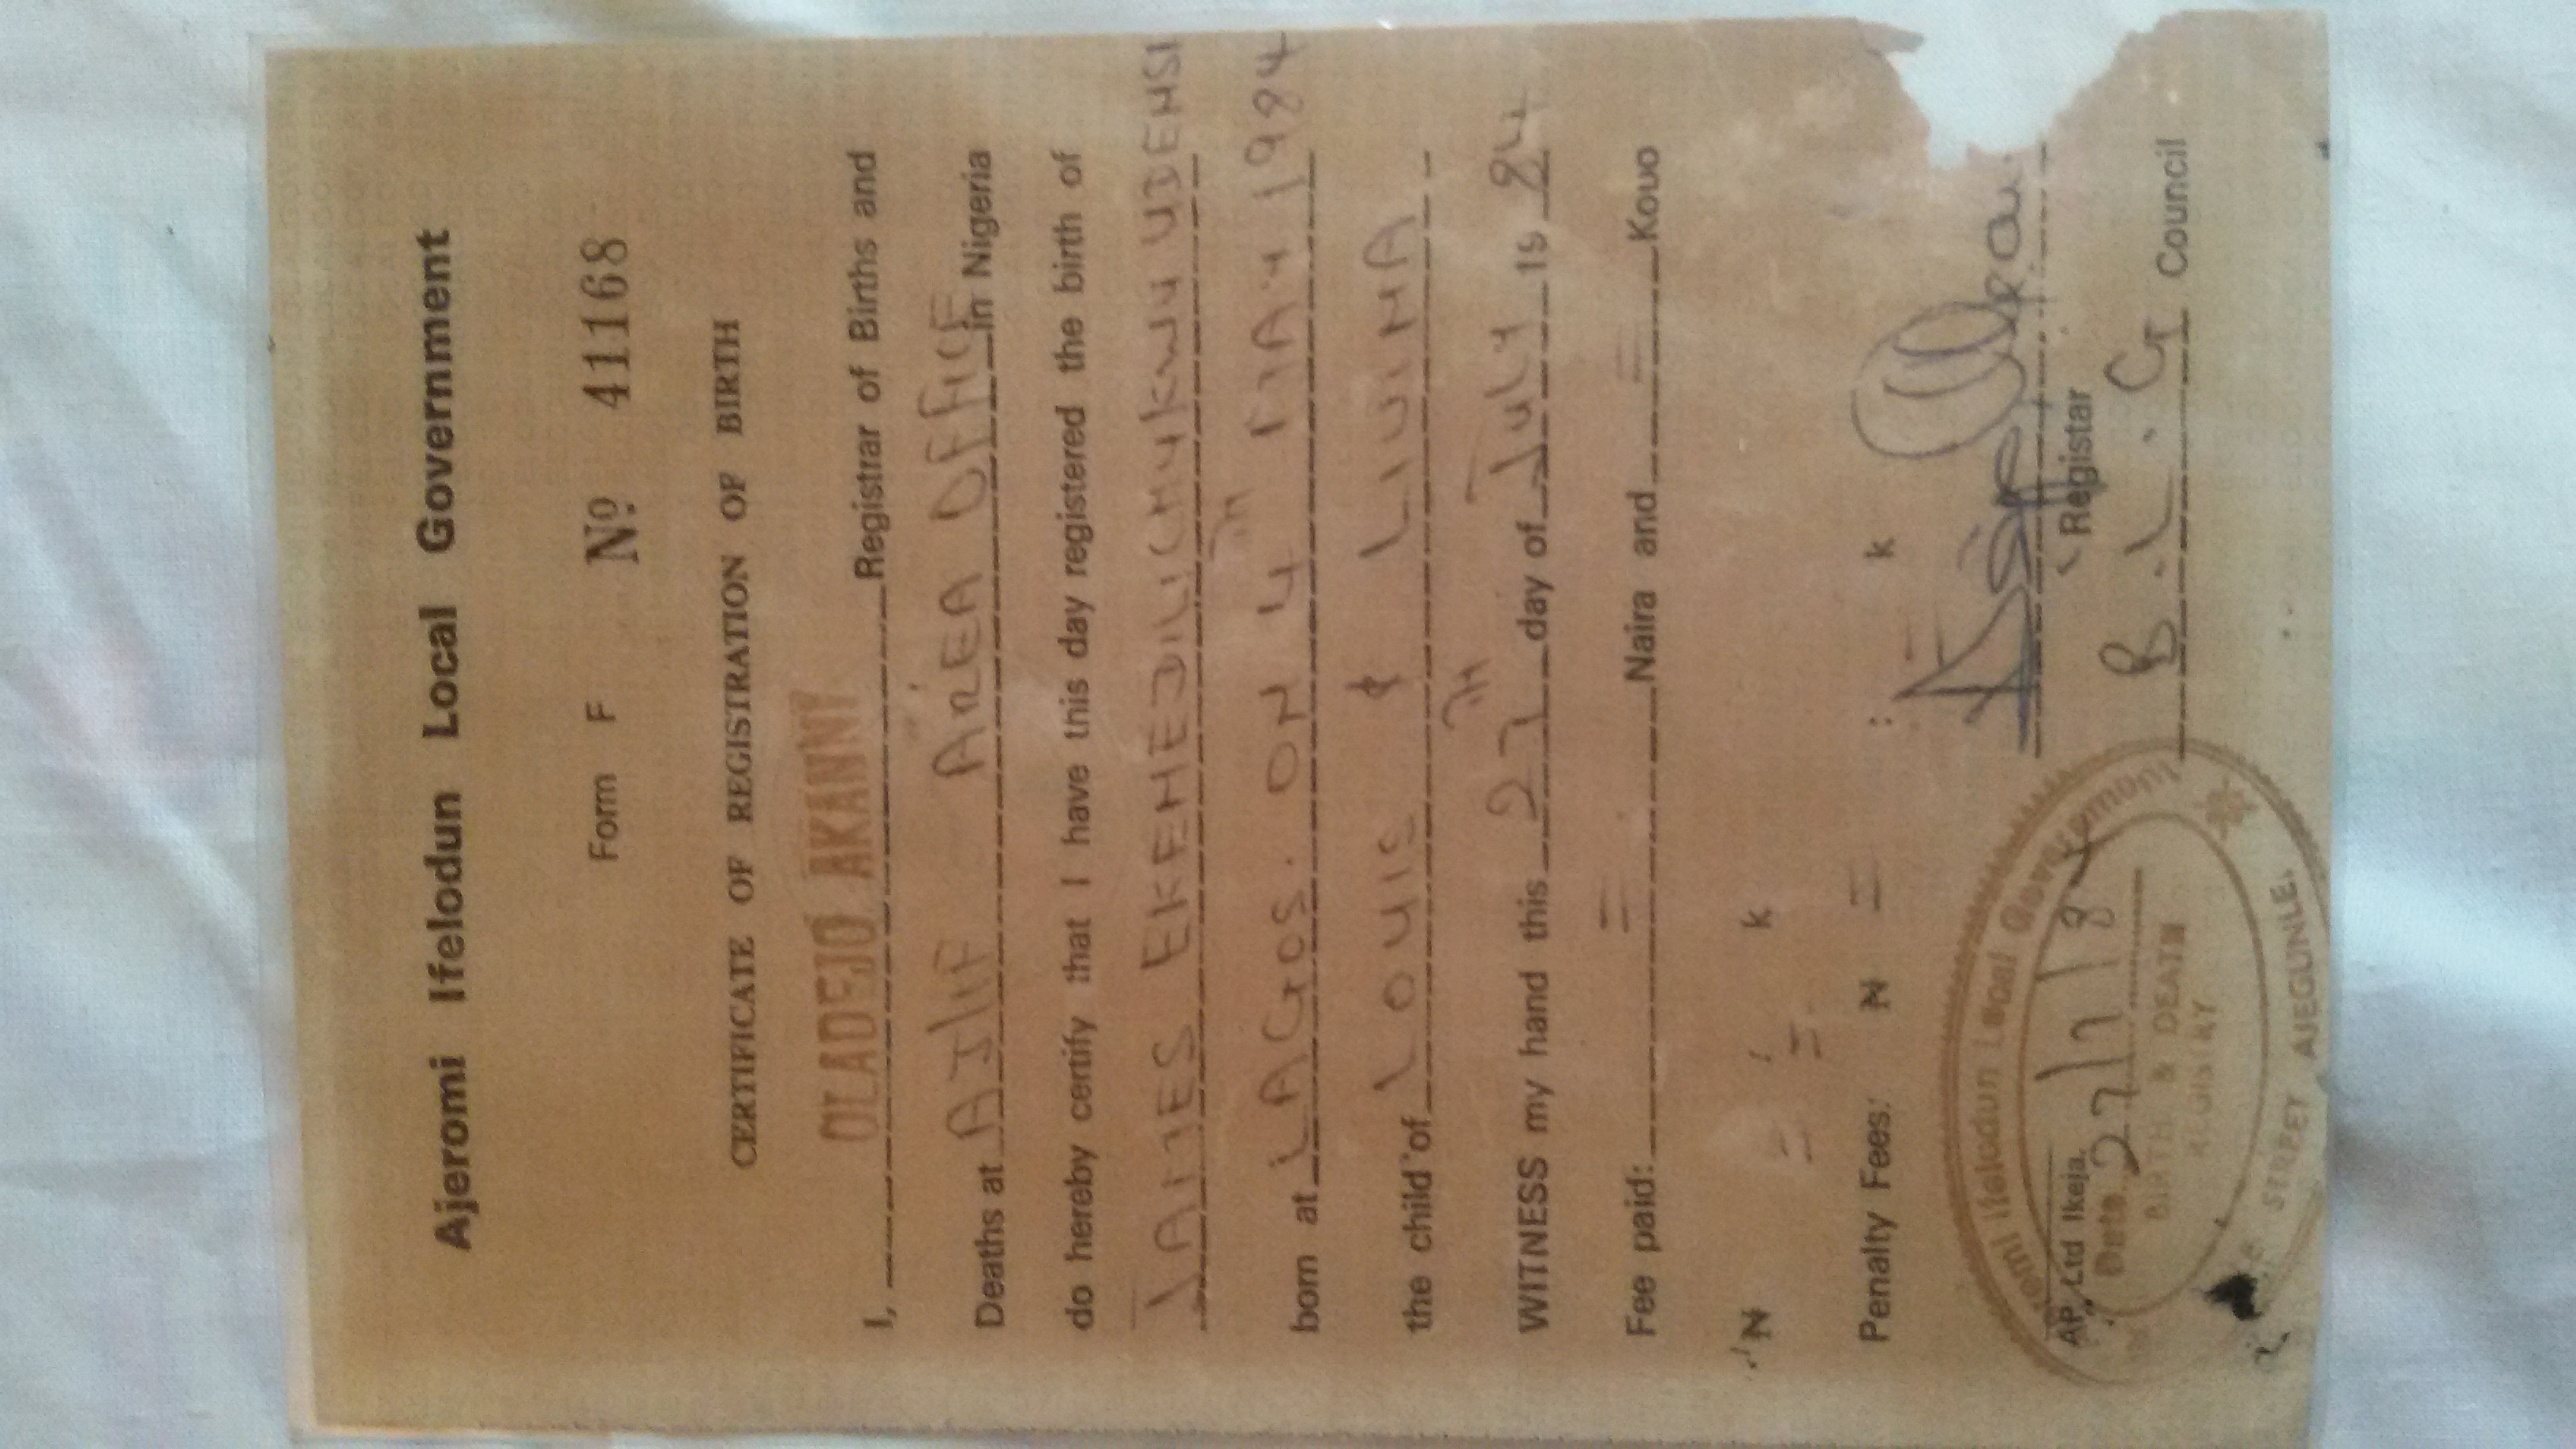 Ajeromi Ifelodun Local Government
Form F Nº 41168
CERTIFICATE OF REGISTRATION OF BIRTH
OLADEJO AKANNI
I, Registrar of Births and
Deaths at AJIF AREA OFFICE in Nigeria
do hereby certify that I have this day registered the birth of
JAMES EKENEDILICHUKWU UDENSI
born at LAGOS. ON 4TH MAY 1984
the child of LOUIS & LIVINA
WITNESS my hand this 27TH day of July 19 84
Fee paid: = Naira and = Kobo
N = : = k
Penalty Fees: N = : = k
Registar
B.L.G Council
AP Ltd Ikeja.
Ifelodun Local Government
Date 27/7/84
BIRTH & DEATH
STREET AJEGUNLE.